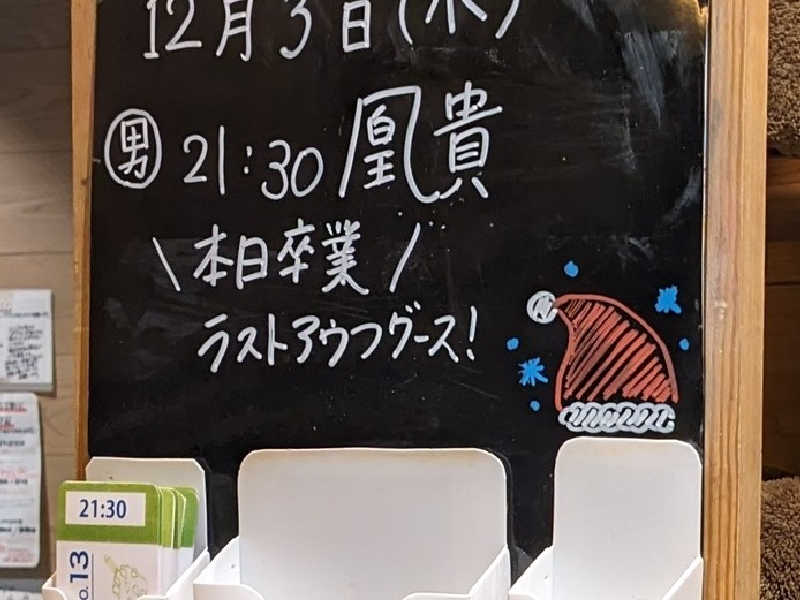 12月3日(水)
男 21:30 凰貴
\本日卒業/
ラストアウフグース!
21:30
No.13